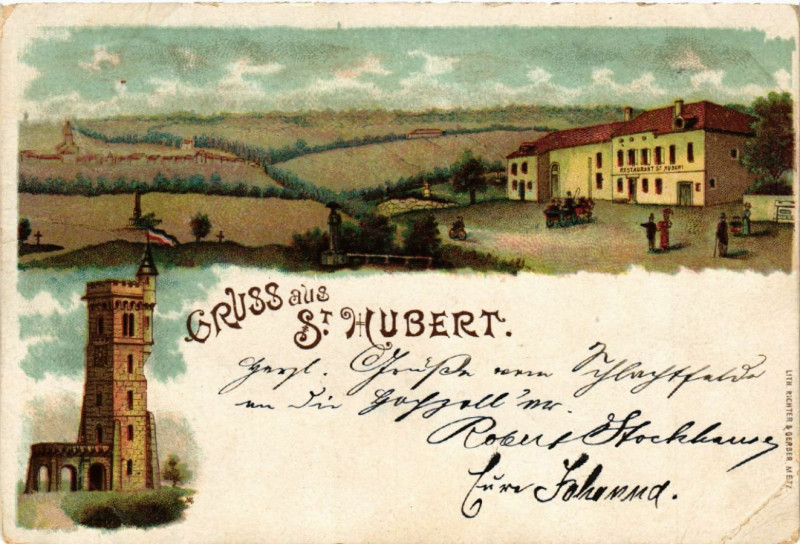 RESTAURANT ST. HUBERT
GRUSS aus
ST HUBERT.
herzl. Grüße vom Schlachtfelde
an die
Robert Stockhausen
Eure Johanna.
LITH. RICHTER & GERBER, METZ